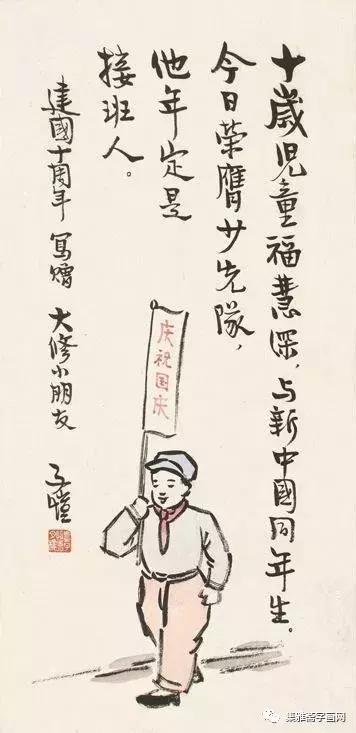 十歲児童福慧深,与新中國同年生。
今日荣膺少先隊,
他年定是
接班人。
建國十周年 寫贈 大修小朋友 子愷
庆祝国庆
集雅斋字画网